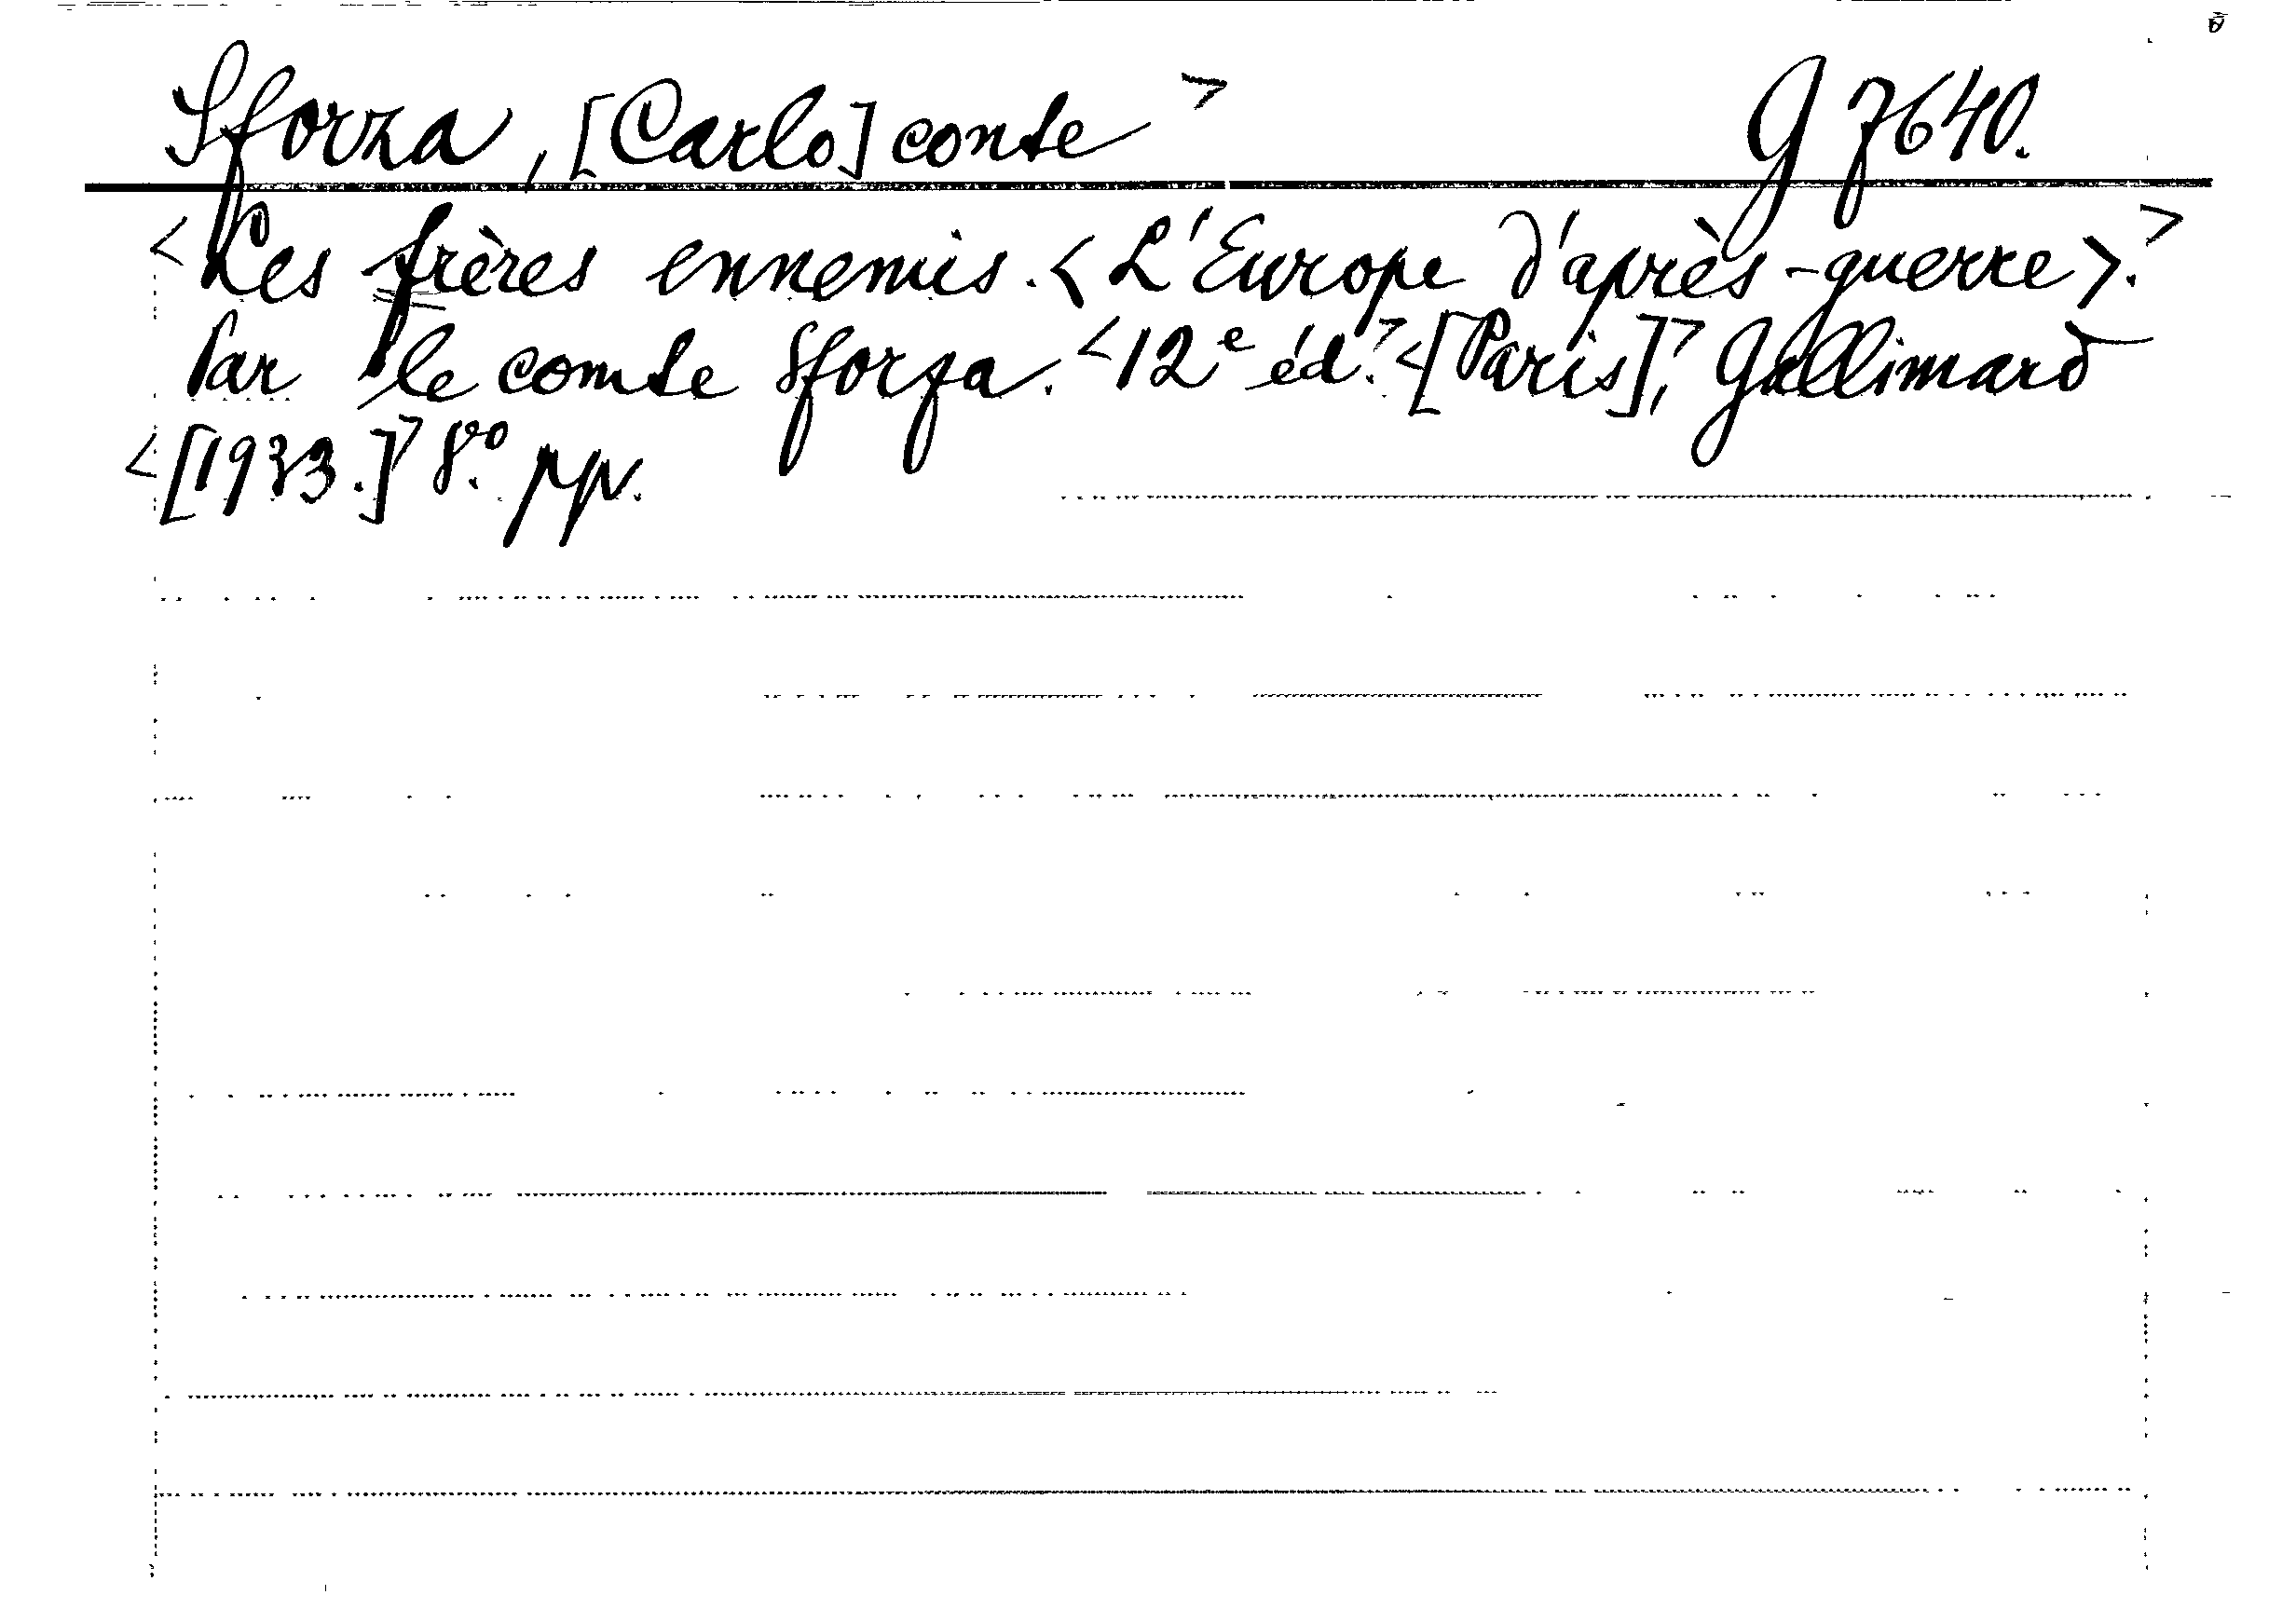 Sforza, [Carlo] conte > G 7640.
< Les frères ennemis. < L'Europe d'après-guerre >. >
Par le comte Sforza. < 12e éd. > < [Paris], > Gallimard
< [1933.] > 8vo. pp.